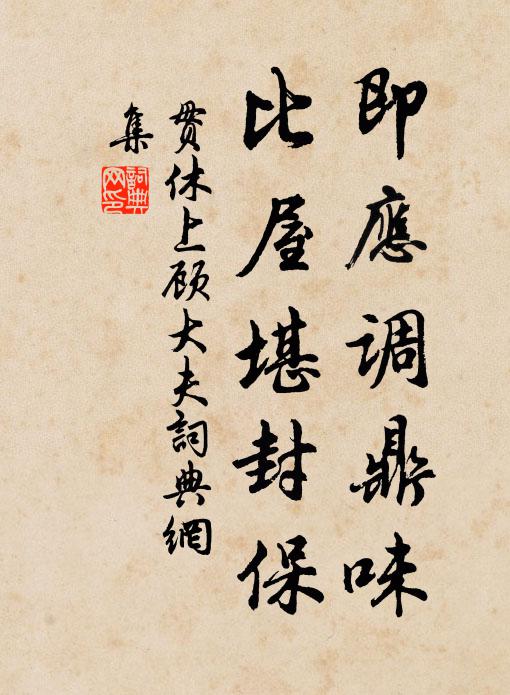 即應调鼎味
比屋堪封保
贯休上顾大夫詞典網
集
詞典
网印